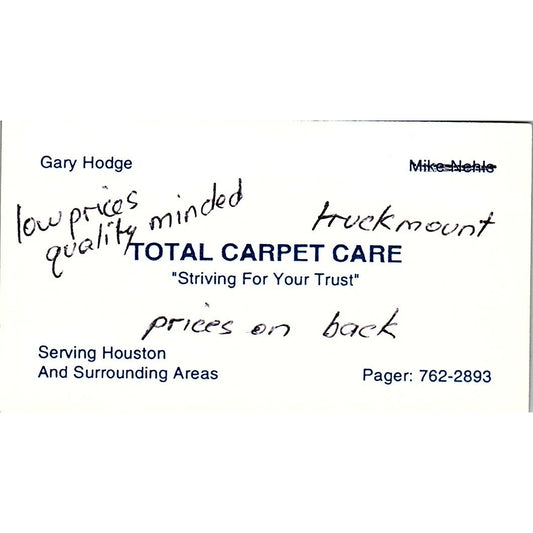 Gary Hodge
Mike Nehls
low prices
quality minded
truckmount
TOTAL CARPET CARE
"Striving For Your Trust"
prices on back
Serving Houston
And Surrounding Areas
Pager: 762-2893